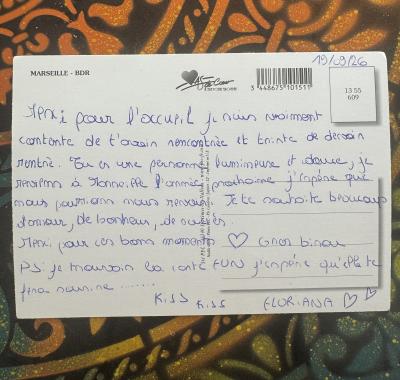 MARSEILLE - BDR
19/09/26
3 448675 101511
13 55
609
Merci pour l'accueil je suis vraiment
contente de t'avoir rencontrée et triste de devoir
rentrée. Tu es une personne lumineuse et douce, je
reviens à Marseille l'année prochaine j'espère que
nous pourrions nous revoir. Je te souhaite beaucoup
d'amour, de bonheur, de succès.
Merci pour ces bons moments ♡ Gros bisou
PS: je trouvais la carte FUN j'espère qu'elle te
fera sourire .......
KISS KISS FLORIANA ♡ ♡